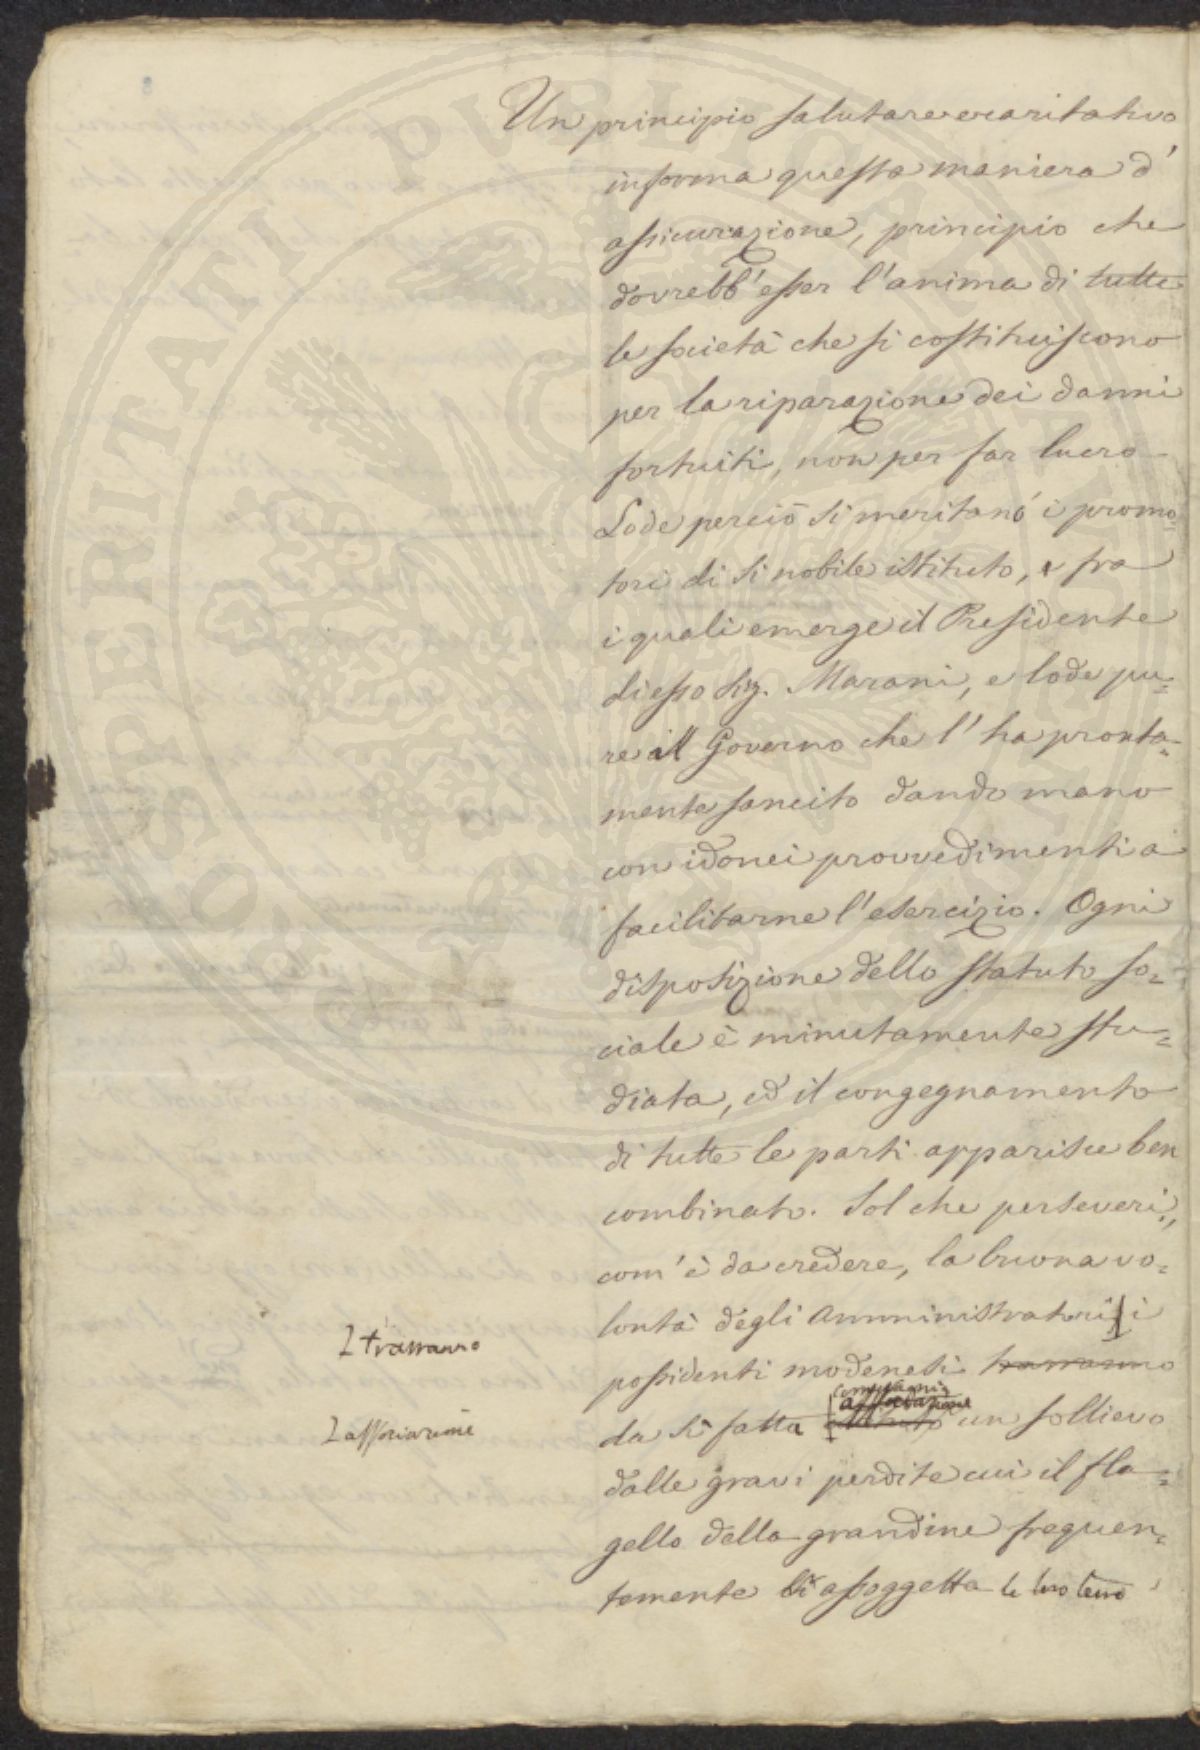 Un principio salutare e caritativo
informa questa maniera d'
assicurazione, principio che
dovrebb'esser l'anima di tutte
le società che si costituiscono
per la riparazione dei danni
fortuiti, non per far lucro
Lode perciò si meritano i promo=
tori di sì nobile istituto, e fra
i quali emerge il Presidente
di esso Sig. Marani, e lode pu=
re il Governo che l'ha pronta=
mente sancito dando mano
con idonei provvedimenti a
facilitarne l'esercizio. Ogni
disposizione dello statuto so=
ciale è minutamente stu=
diata, ed il congegnamento
di tutte le parti apparisce ben
combinato. Sol che perseveri,
com'è da credere, la buona vo=
lontà degli Amministratori, i
possidenti modenesi trarranno
trarranno
compagnia
associazione
da sì fatta un sollievo
associazione
dalle gravi perdite cui il fla=
gello della grandine frequen=
temente assoggetta le loro terre
PROSPERITATI PVBLICAE